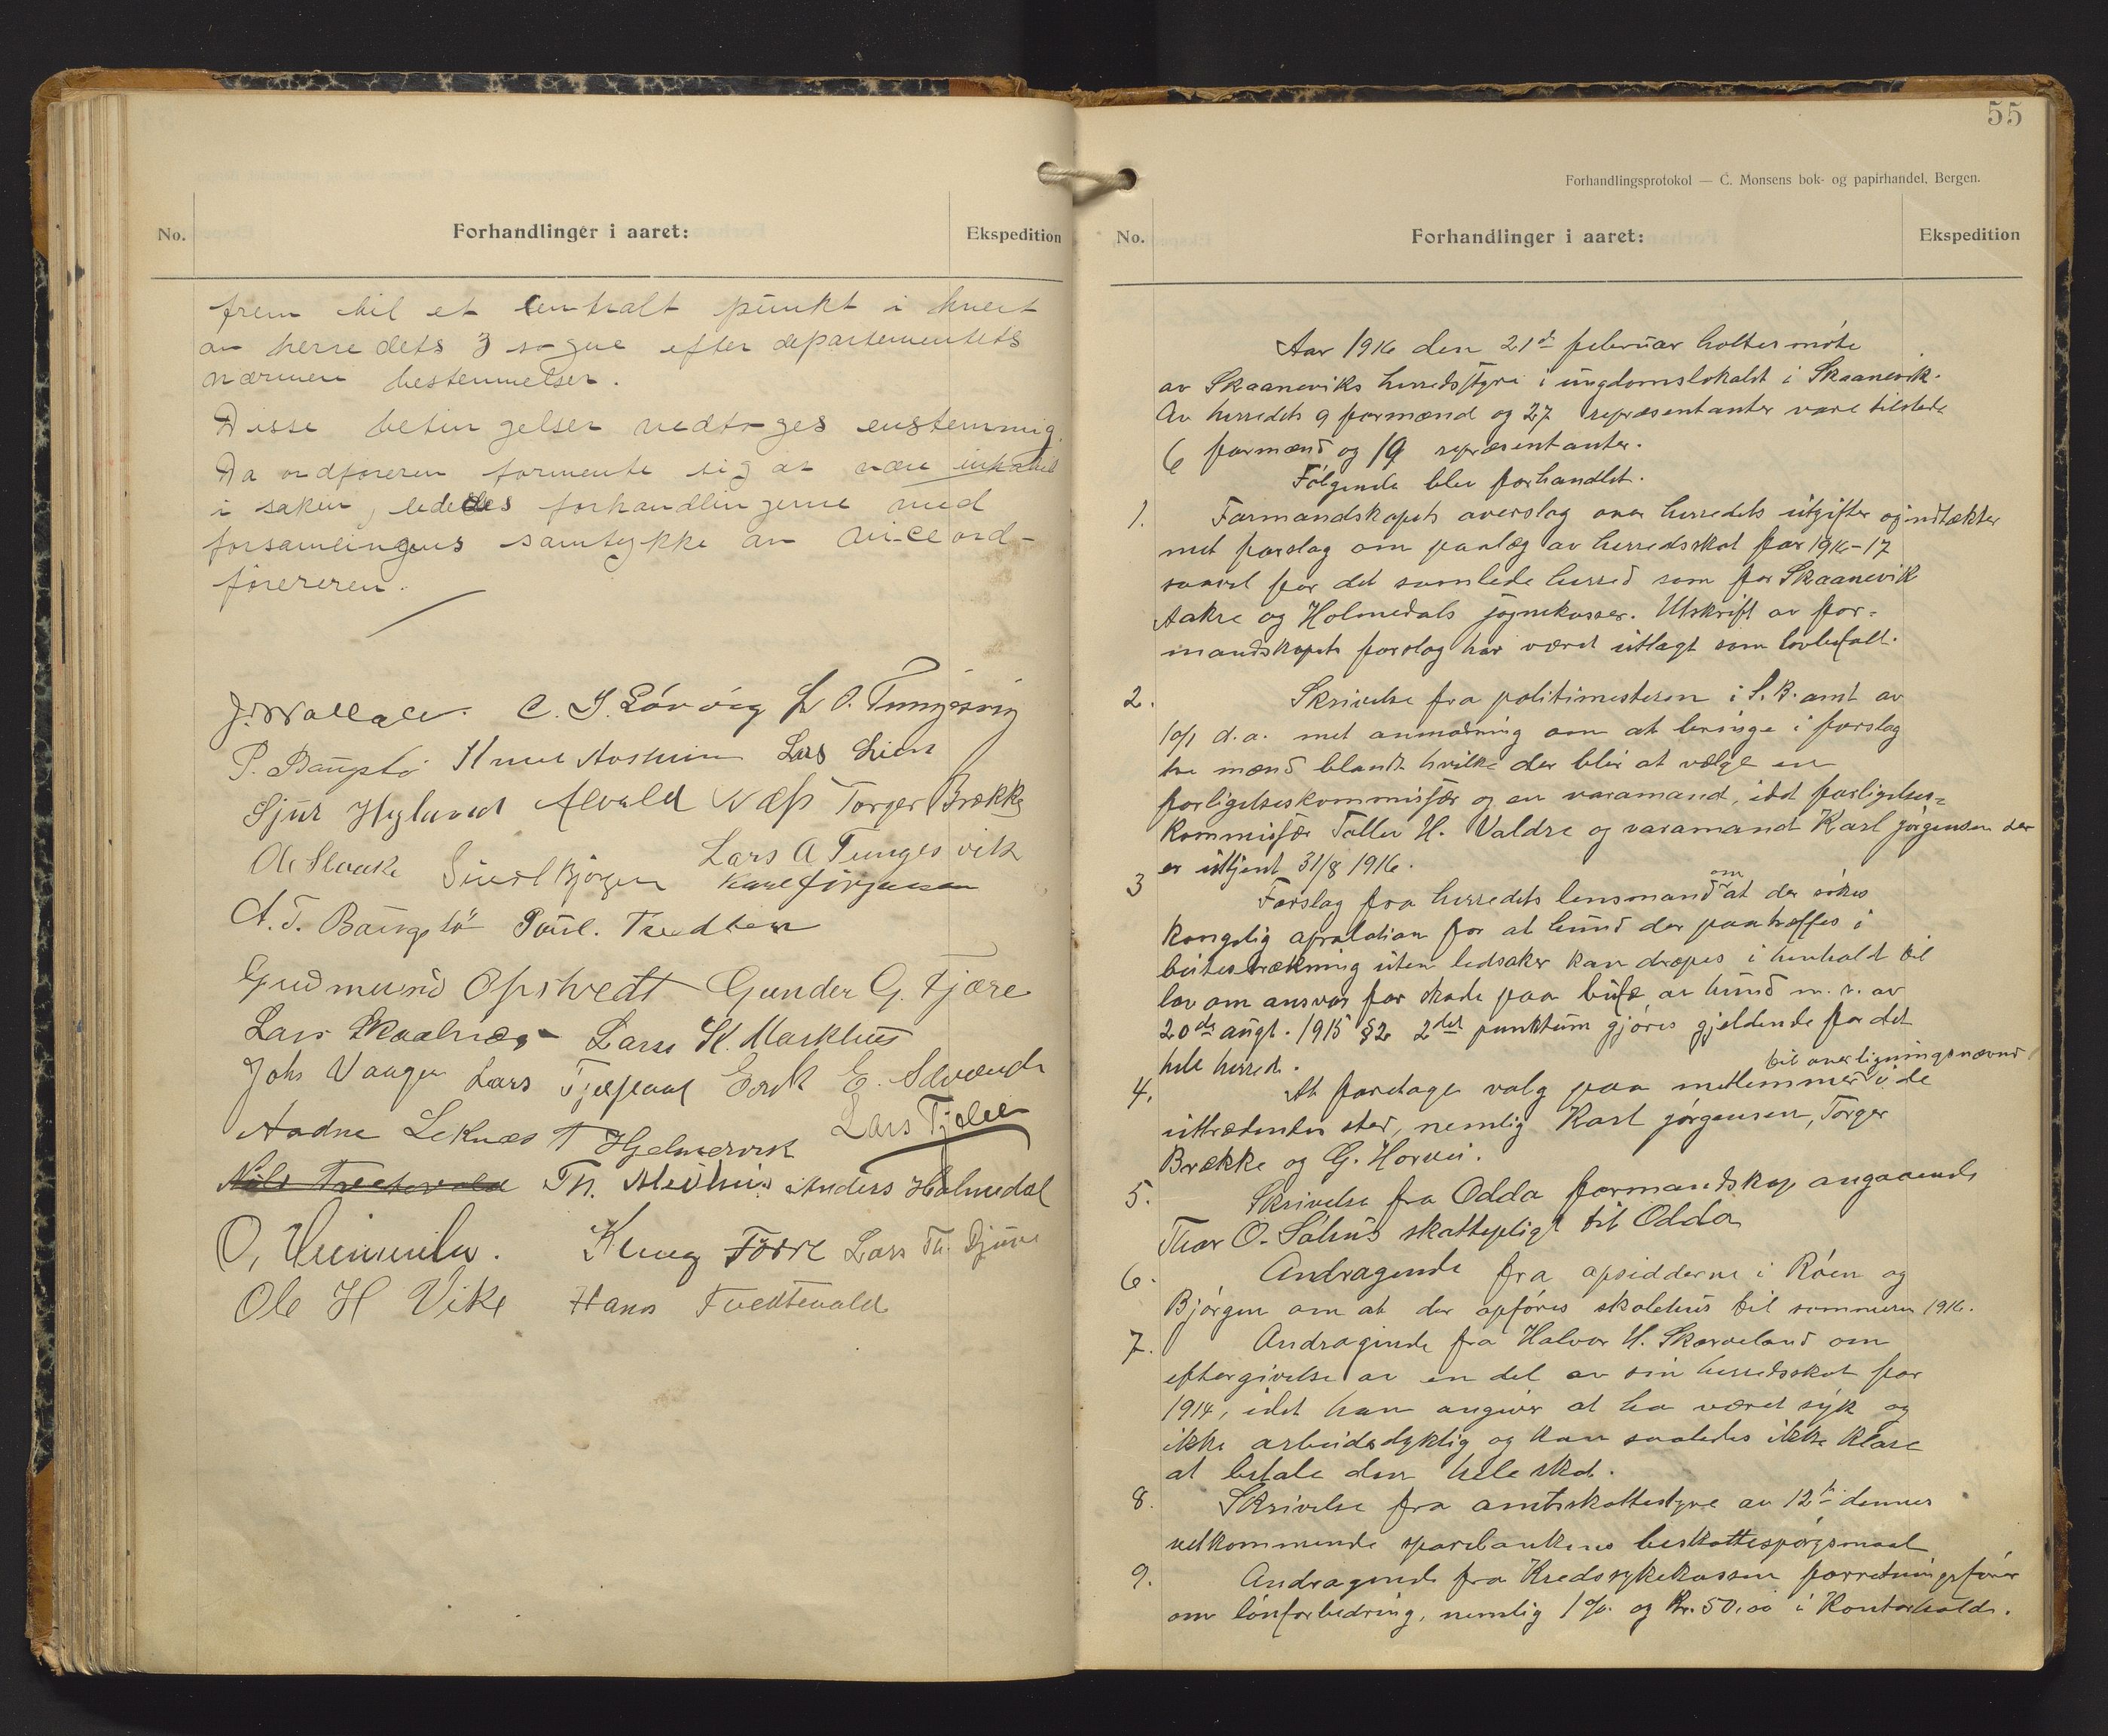 No.
Forhandlinger i aaret:
Ekspedition
frem til et centralt punkt i hvert
av herredets 3 sogne efter departementets
nærmere bestemmelser.
Disse betingelser vedtoges enstemmig.
Da ordføreren formente sig at være inhabil
i saken, lededes forhandlingerne med
forsamlingens samtykke av viceord-
føreren.
J. Wallace. C. J. Lönvig L. O. Tungesvig
P. Baugstø Knut Lars Lien
Sjur Hyland Alvald Næss Torger Brække
Ole Sivert Bjørgen Lars A Tungesvik
Karl Jørgensen
A. T. Baugstø Poul. Tvedten
Gudmund Opstvedt Gunder G. Fjære
Lars Skaalnæs Lars K. Markhus
Johs Vaage Lars Erik E.
Aadne Leknæs T Hjelmervik Lars Fjelli
Nils Tvedtevold Th. Anders Holmedal
O. Knug Förre Lars Th. Djuve
Ole H Vike Hans Tvedtevold
55
Forhandlingsprotokol — C. Monsens bok- og papirhandel, Bergen.
No.
Forhandlinger i aaret:
Ekspedition
Aar 1916 den 21de februar holtes møte
av Skaaneviks herredstyre i ungdomslokalet i Skaanevik.
Av herredets 9 formænd og 27 repræsentanter vare tilstede
6 formænd og 19 repræsentanter.
Følgende blev forhandlet.
1. Formandskapets overslag over herredets utgifter og indtækter
met forslag om paalæg av herredsskat for 1916-17
saavel for det samlede herred som for Skaanevik
Aakre og Holmedals sognekasser. Utskrift av for-
mandskapets forslag har været utlagt som lovbefalt.
2. Skrivelse fra politimesteren i S. B. amt av
10/1 d.a. met anmodning om at bringe i forslag
tre mænd blandt hvilke der blir at vælge en
forligelseskommissær og en varamand, idet forligelses-
kommissær Tollev H. Valdre og varamand Karl Jørgensen der
er uttjent 31/8 1916.
3 Forslag fra herredets lensmand om at der søkes
kongelig resolution for at hund der paatræffes i
beitestrækning uten ledsaker kan dræpes i henhold til
lov om ansvar for skade paa bufæ av hund m. v. av
20de augt. 1915 §2 2det punktum gjøres gjeldende for det
hele herred.
4. At foretage valg paa medlemmer til overligningsnævnd i de
uttrædendes sted, nemlig Karl Jørgensen, Torger
Brække og G. Horvei.
5. Skrivelse fra Odda formandskap angaaende
Thor O. Sølhus skattepligt til Odda
6. Andragende fra opsidderne i Røen og
Bjørgen om at der opføres skolehus til sommeren 1916.
7. Andragende fra Halvor H. Skarveland om
eftergivelse av en del av sin herredsskat for
1914, idet han angiver at ha været syk og
ikke arbeidsdyktig og kan saaledes ikke klare
at betale den hele skat.
8. Skrivelse fra amtsskattestyre av 12te dennes
vedkommende sparebankens beskattespørgsmaal
9. Andragende fra Kredssykekassen forretningsfører
om lønforbedring, nemlig 1 % og Kr. 50,00 i Kontorhold.